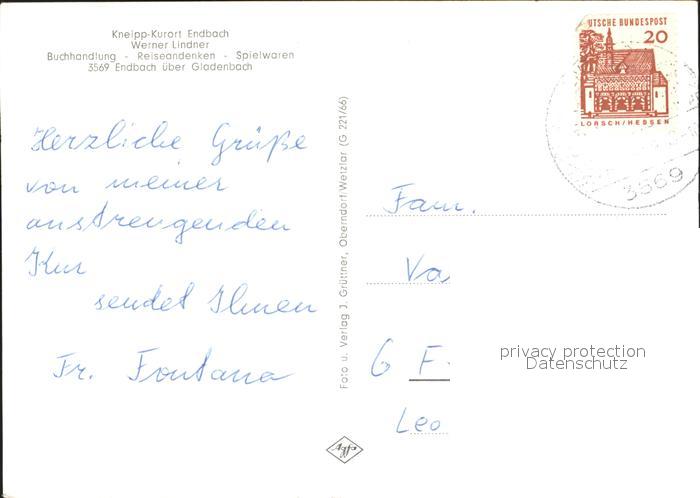 Kneipp-Kurort Endbach
Werner Lindner
Buchhandlung - Reiseandenken - Spielwaren
3569 Endbach über Gladenbach
Herzliche Grüße
von meiner
anstrengenden
Kur
sendet Ihnen
Fr. Fontana
Foto u. Verlag J. Grüttner, Oberndorf/Wetzlar (G 221/66)
Agfa
UTSCHE BUNDESPOST
20
LORSCH/HESSEN
3569
Fam.
Va
6 F.
Leo
privacy protection
Datenschutz